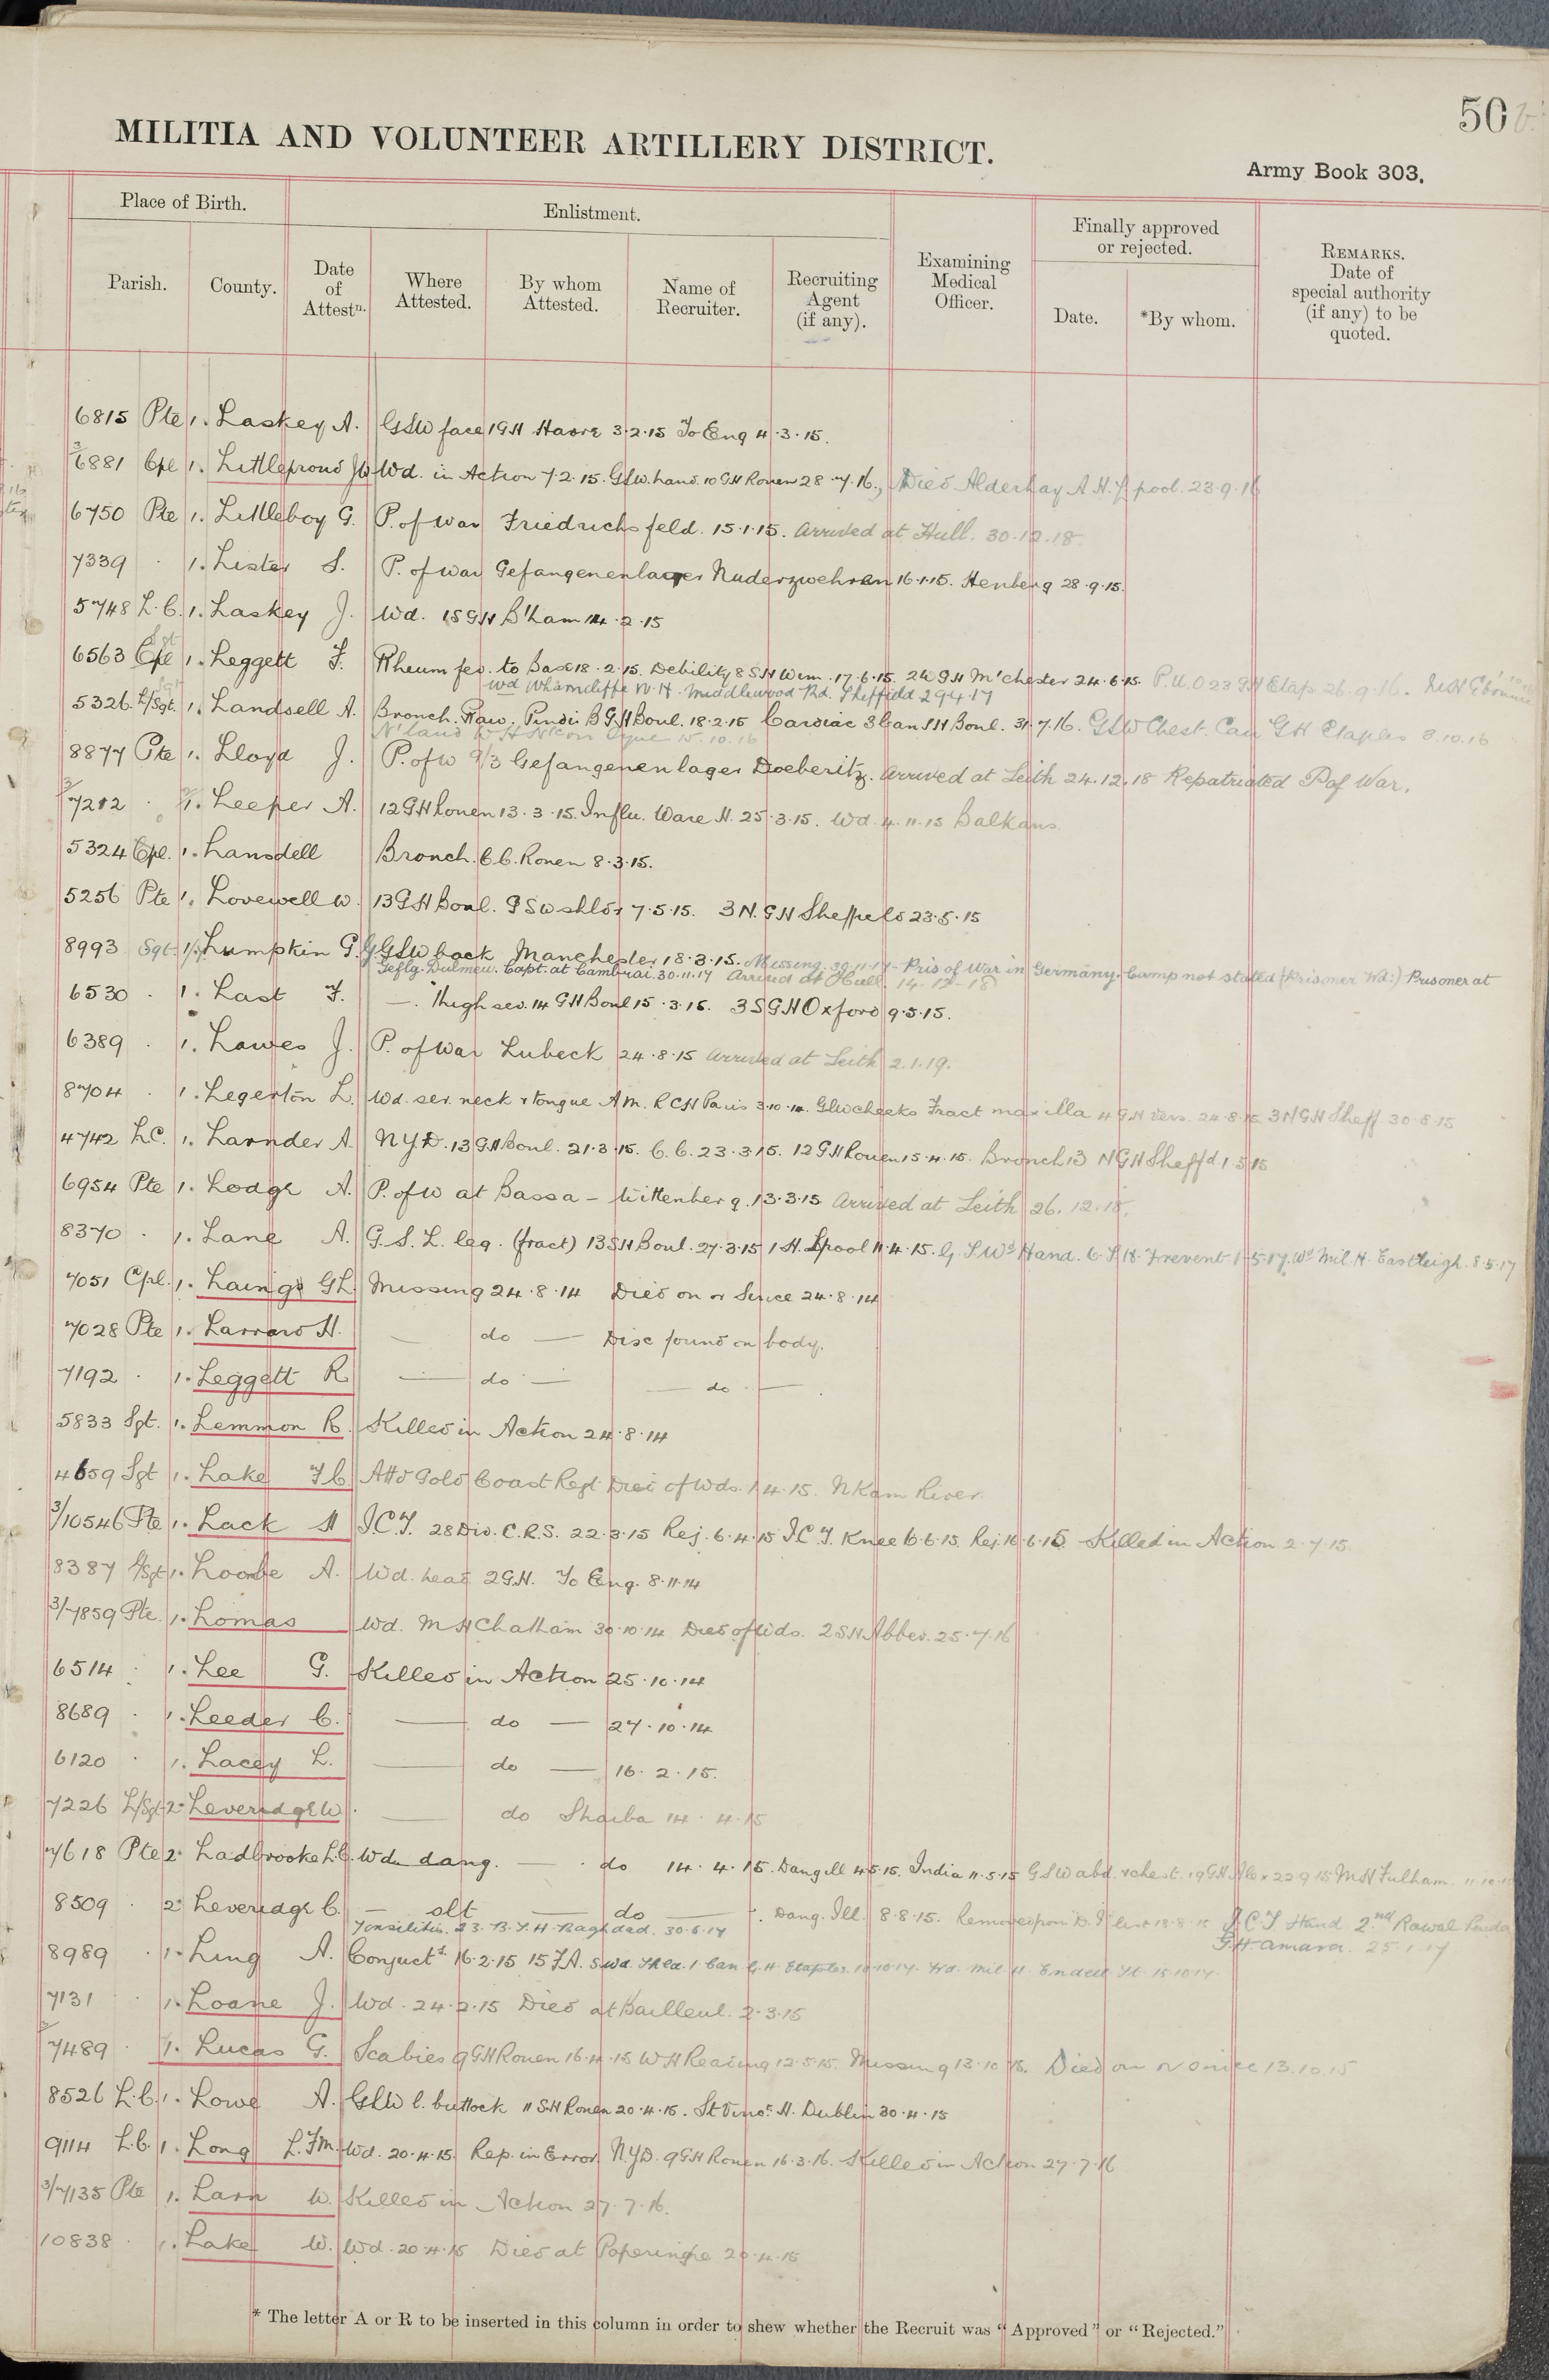 50
MILITIA AND VOLUNTEER ARTILLERY DISTRICT.
Army Book 303.
Place of Birth.
Enlistment.
Finally approved or rejected.
REMARKS. Date of special authority (if any) to be quoted.
Parish.
County.
Date of Attestn.
Where Attested.
By whom Attested.
Name of Recruiter.
Recruiting Agent (if any).
Examining Medical Officer.
Date.
*By whom.
6815 Pte 1. Laskey A. GSW face 1 GH Havre 3.2.15 To Eng 4.3.15.
3/6881 Cpl 1. Littleproud JW Wd. in Action 7.2.15. GSW. hand. 10 GH Rouen 28.7.16., Died Alderhay A.H. L'pool. 23.9.16
6750 Pte 1. Littleboy G. P. of War Friedrichsfeld. 15.1.15. Arrived at Hull. 30.12.18.
7339 . 1. Lister S. P. of War Gefangenenlager Niederzwehren 16.1.15. Henberg 28.9.15.
5748 L.C. 1. Laskey J. Wd. 1S GH B'ham 14.2.15
6563 Cpl Sgt 1. Leggett F. Rheum fev. to Base 18.2.15. Debility 8 SH Wim. 17.6.15. 2 W GH M'chester 24.6.15. P.U.O 23 GH Etap. 26.9.16.
Wd Wharncliffe W.H. Middlewood Rd. Sheffield 29.4.17
5326 L/Sgt. 1. Landsell A. Bronch. Boul. 18.2.15 Cardiac 3 Can SH Boul. 31.7.16. GSW Chest. Can GH Etaples 8.10.16
N'land W H N'Cas Tyne 15.10.16
8877 Pte 1. Lloyd J. P. of W 9/3 Gefangenenlager Doeberitz. Arrived at Leith 24.12.18 Repatriated P of War.
3/7212 . 1. Leeper A. 12 GH Rouen 13.3.15. Influ. Ware H. 25.3.15. Wd. 4.11.15 Balkans.
5324 Cpl. 1. Lansdell Bronch. C.C. Rouen 8.3.15.
5256 Pte 1. Lovewell W. 13 GH Boul. GSW shldr 7.5.15. 3 N. GH Sheffield 23.5.15
8993 Sgt. 1. Lumpkin G.G. GSW back Manchester 18.3.15. Missing. 30.11.17 - Pris of War in Germany. Camp not stated (Prisoner Wd:) Prisoner at
Geflg. Dulmen. Capt. at Cambrai. 30.11.17 Arrived at Hull. 14-12-18
6530 . 1. Last F. — . Thigh sev. 14 GH Boul 15.3.15. 3 S GH Oxford 9.5.15.
6389 . 1. Lawes J. P. of War Lubeck 24.8.15 Arrived at Leith 2.1.19.
8704 . 1. Legerton L. Wd. sev. neck & tongue Am. R C H Paris 3.10.14. GSW cheeks Fract maxilla 4 GH Vers. 24.8.15 3 N GH Sheff 30.8.15
4742 L.C. 1. Larnder A. NYD. 13 GH Boul. 21.3.15. C.C. 23.3.15. 12 GH Rouen 15.4.15. Bronch 13 N GH Sheffd. 1.5.15
6954 Pte 1. Lodge A. P. of W at Bassa - Wittenberg. 13.3.15 Arrived at Leith 26.12.18.
8370 . 1. Lane A. G.S.L. leg. (fract) 13 SH Boul. 27.3.15 1 H. Lpool 11.4.15. G.S.Wd Hand. 6 S.H. Frevent 1.5.17. Wd Mil. H. Eastleigh. 8.5.17
7051 Cpl. 1. Laing GL. Missing 24.8.14 Died on or Since 24.8.14
7028 Pte 1. Larrard H. — do — Disc found on body.
7192 . 1. Leggett R — do — — do —
5833 Sgt. 1. Lemmon R. Killed in Action 24.8.14
4659 Sgt 1. Lake F C. Attd Gold Coast Regt Died of Wds. 1.4.15. N'Kam River.
3/10546 Pte 1. Lack H I.C.T. 28 Div. C.R.S. 22.3.15 Rej. 6.4.15 I.C.T. Knee 6.6.15. Rej. 16.6.15. Killed in Action 2.7.15.
8387 L/Sgt 1. Loombe A. Wd. head 2 G.H. To Eng. 8.11.14
3/7859 Pte 1. Lomas Wd. M H Chatham 30.10.14 Died of Wds. 2 SH Abbev. 25.7.16
6514 . 1. Lee G. Killed in Action 25.10.14
8689 . 1. Leeder C. — do — 27.10.14
6120 . 1. Lacey L. — do — 16.2.15.
7226 L/Sgt 2. Leveridge W. — do Shaiba 14.4.15
7618 Pte 2. Ladbrooke L.C. Wd dang. — . do 14.4.15. Dang ill 4.5.15. India 11.5.15 GSW abd. & chest. 19 GH Alex 22.9.15 M H Fulham.
8509 . 2. Leveridge C. — slt — do — . Dang. Ill. 8.8.15. Removed from D.I. list 18.8.15 I.C.T Hand 2nd Rawal Pindi
Tonsilitis. 23. B.S.H. Baghdad. 30.6.17
G.H. Amara. 25.1.17
8989 . 1. Ling A. Conjuct. 16.2.15 15 F.A. 1 Can G.H. Etaples. 10.10.17. Mil. H. 15.10.17.
7131 . 1. Loane J. Wd. 24.2.15 Died at Bailleul. 2.3.15
3/7489 . 1. Lucas G. Scabies 9 GH Rouen 16.4.15 W H Reading 12.5.15. Missing 13.10.15. Died on or since 13.10.15
8526 L.C. 1. Lowe A. GSW l. buttock 11 SH Rouen 20.4.15. St Vincs. H. Dublin 30.4.15
9114 L.C. 1. Long L.F.M. Wd. 20.4.15. Rep. in Error. N.Y.D. 9 GH Rouen 16.3.16. Killed in Action 27.7.16
3/7135 Pte 1. Larn W. Killed in Action 27.7.16.
10838 . 1. Lake W. Wd. 20.4.15 Died at Poperinghe 20.4.15
* The letter A or R to be inserted in this column in order to shew whether the Recruit was "Approved" or "Rejected."